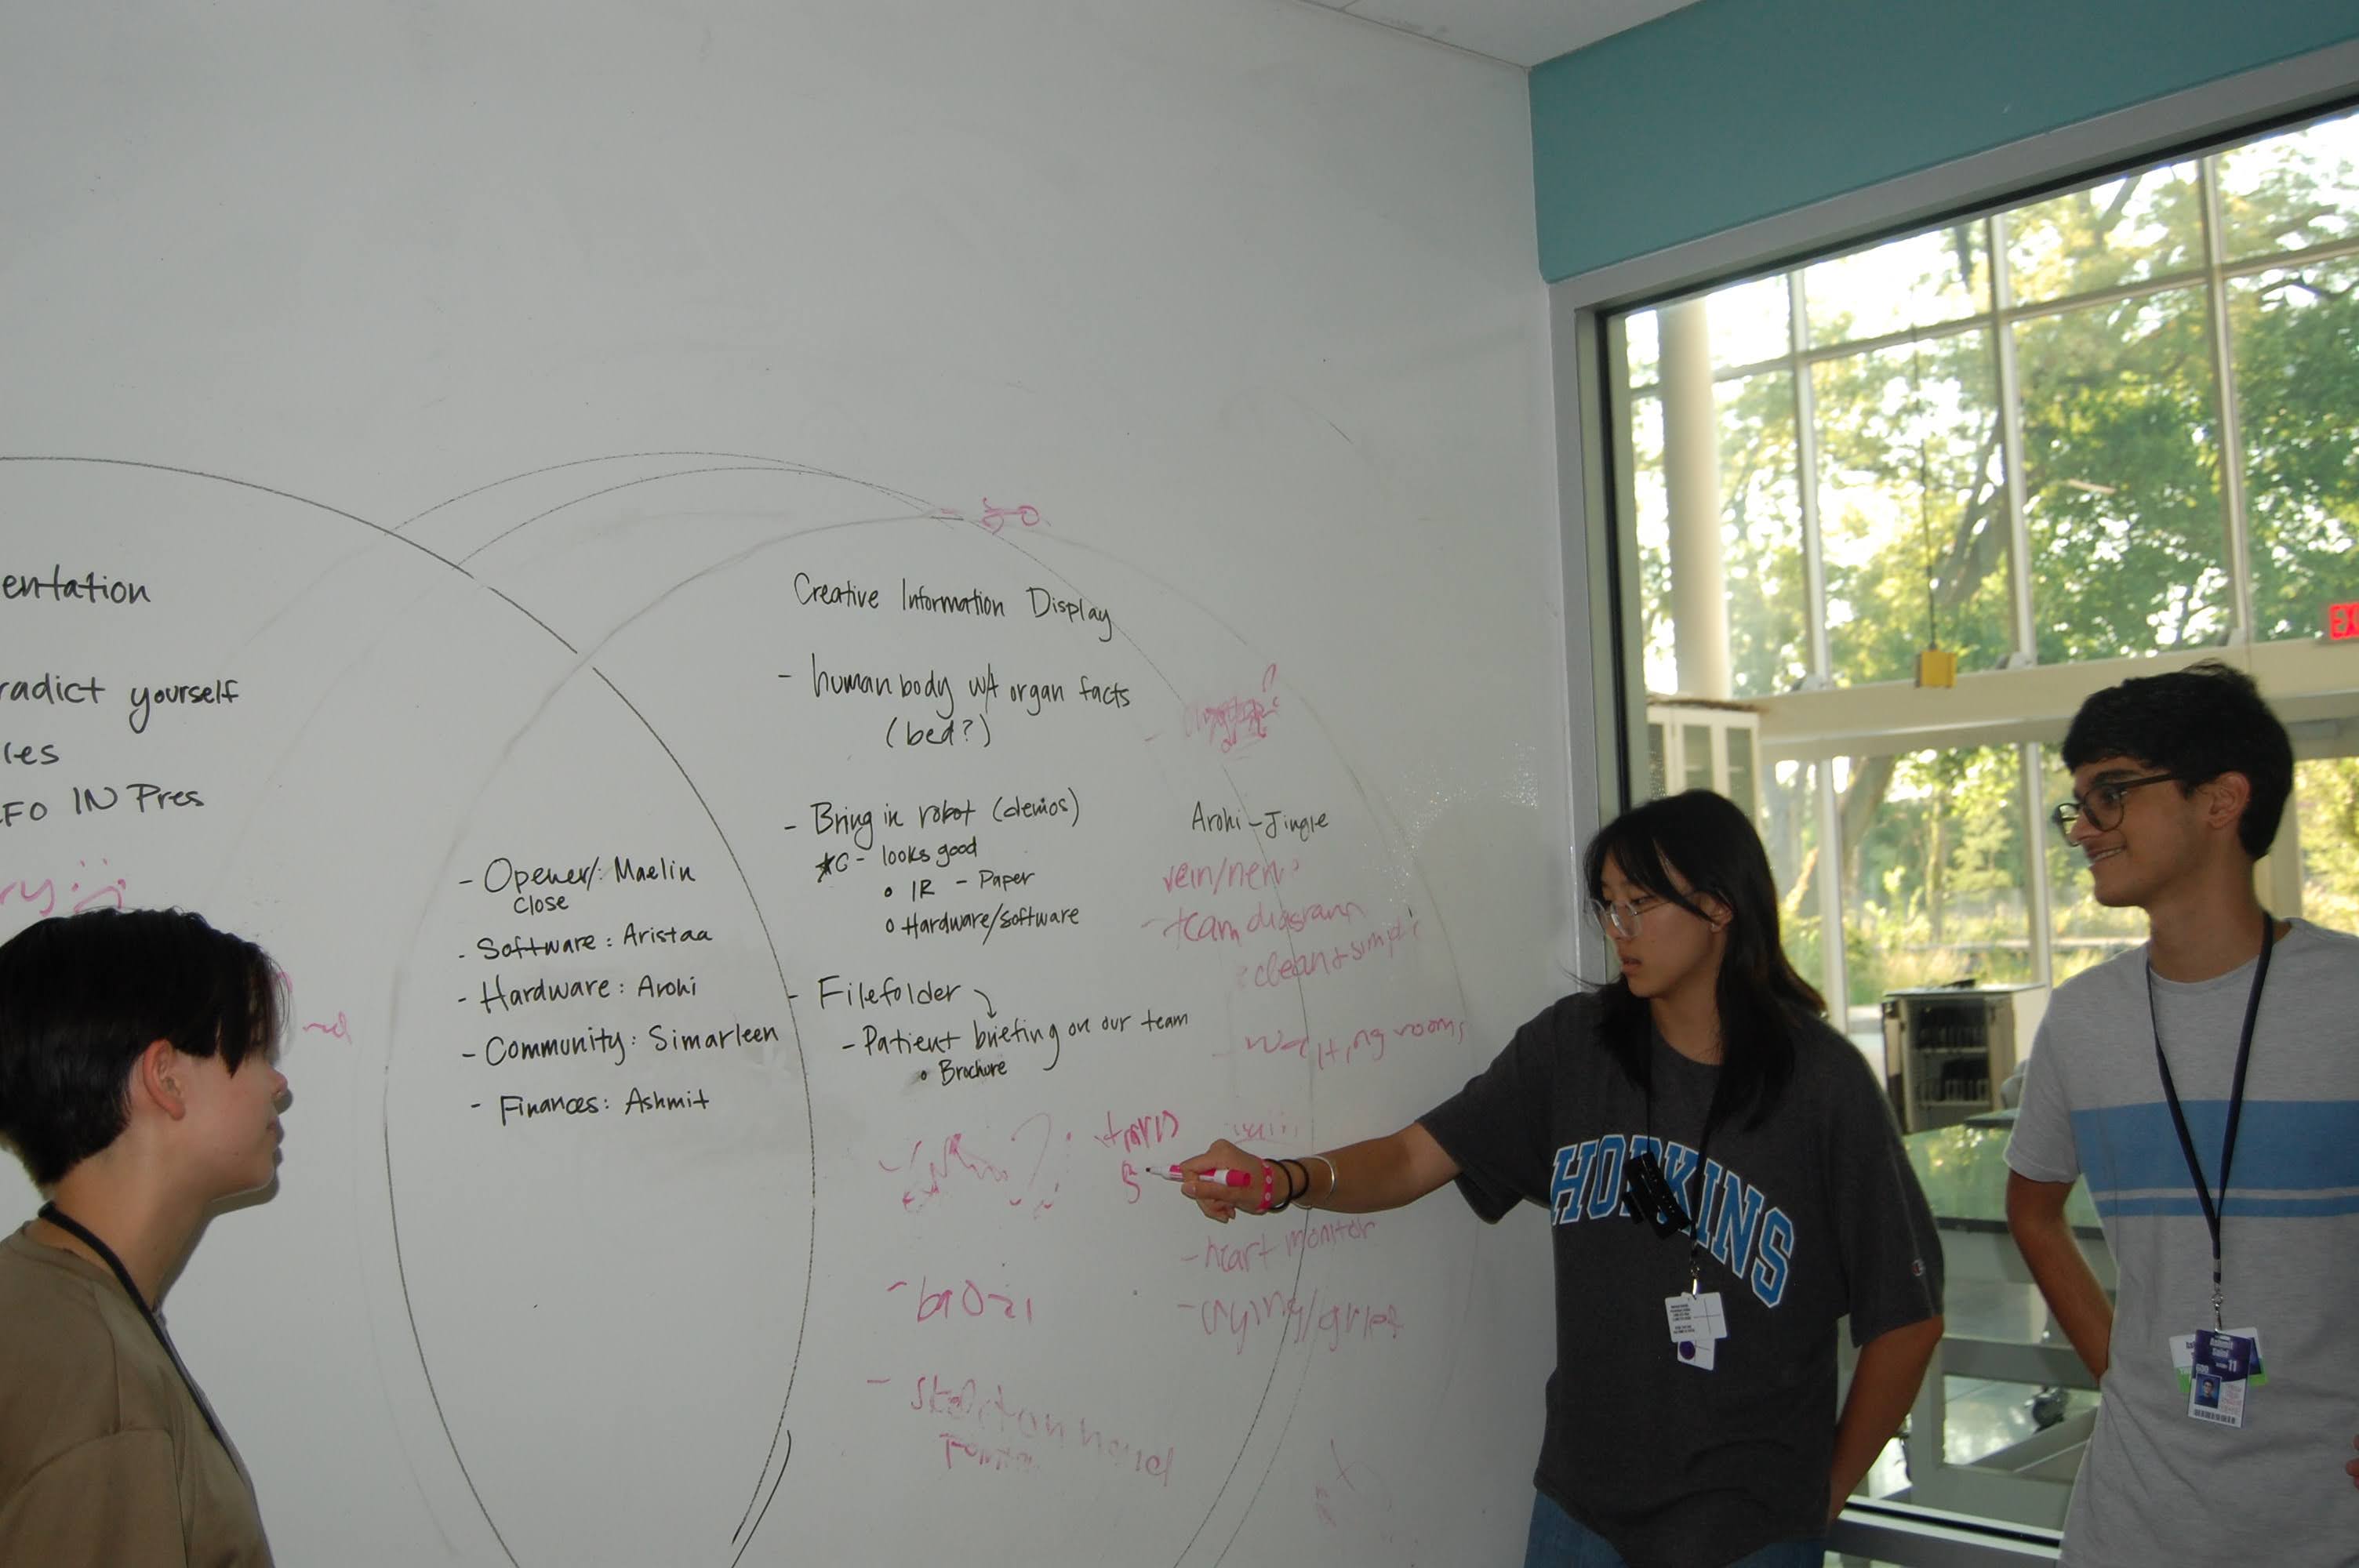 entation
radict yourself
les
FO IN Pres
ry :
- Opener/: Maelin
close
- Software: Aristaa
- Hardware: Arohi
- Community: Simarleen
- Finances: Ashmit
Creative Information Display
- human body w/ organ facts
(bed?)
- Bring in robot (demos)
looks good
IR - Paper
Hardware/software
- Filefolder
- Patient briefing on our team
Brochure
Arohi - Jingle
vein/
- team diagram
clean + simple
- waiting rooms
- heart monitor
- crying/grief
HOPKINS
EX
Ashmit
Saini
11